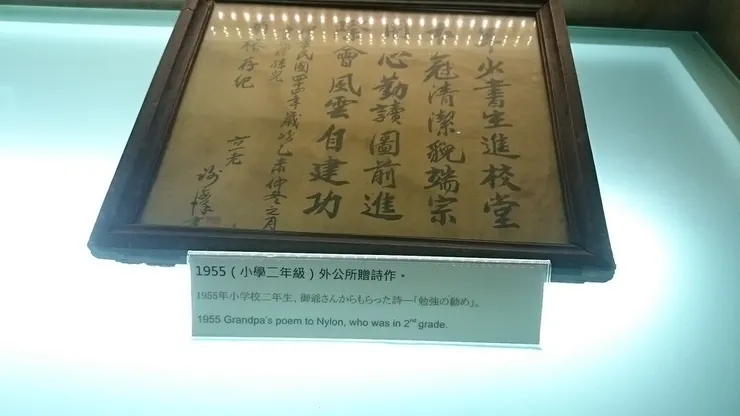 書生進校堂
冠清潔貌端宗
心勤讀圖前進
會風雲自建功
民國四十四年歲次乙未仲冬之月
孫兒
榕存紀
1955（小學二年級）外公所贈詩作。
1955年小学校二年生、御爺さんからもらった詩—「勉強の勧め」。
1955 Grandpa's poem to Nylon, who was in 2nd grade.